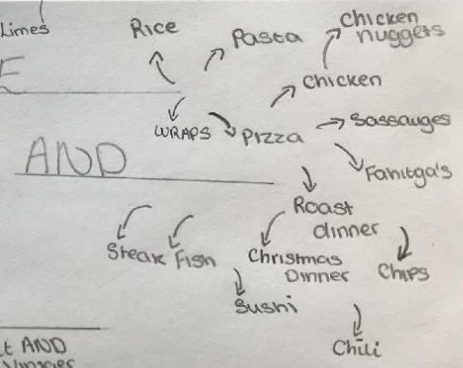 Limes
Rice
Pasta
Chicken
nuggets
Chicken
WRAPS
Pizza
Sassauges
AND
Fahitga's
Roast
dinner
Steak
Fish
Christmas
Dinner
Chips
Sushi
Chili
AND